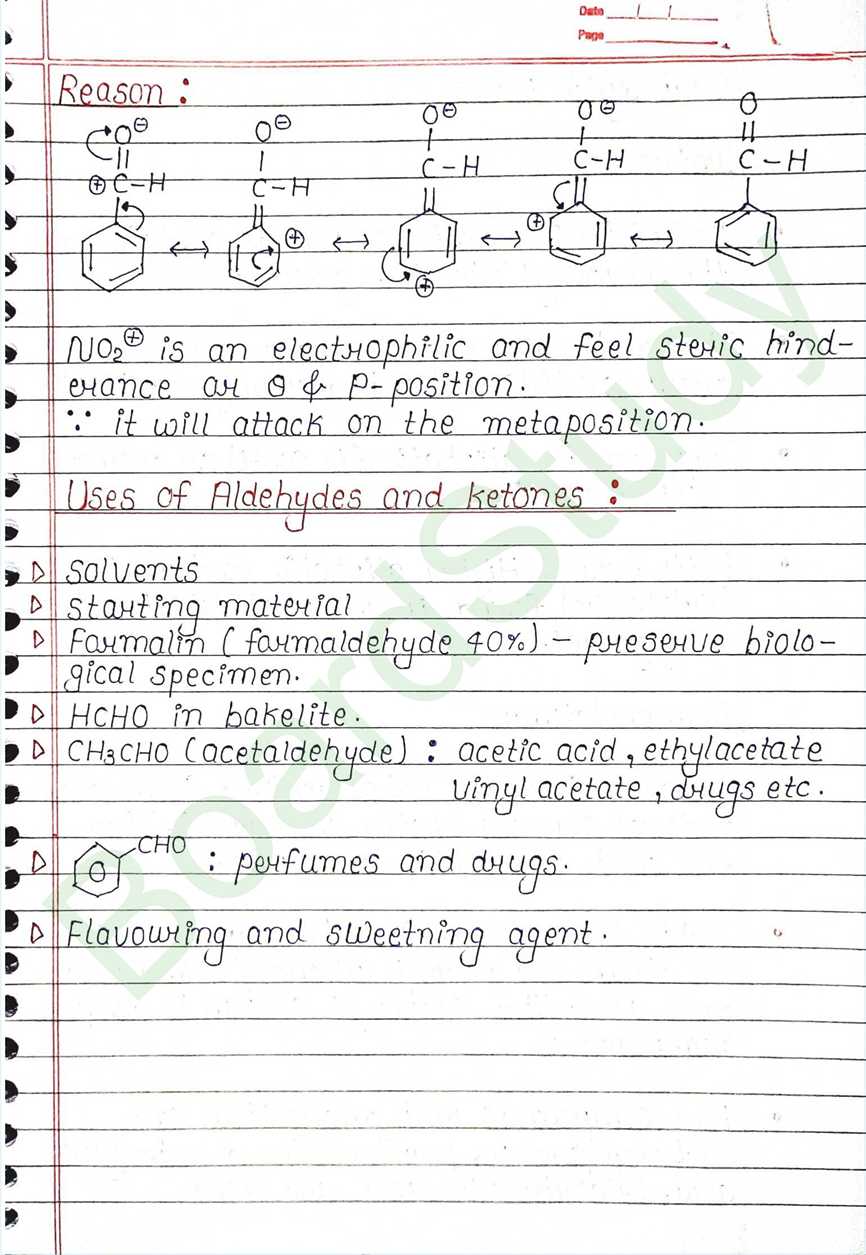 Date / /
Page
Reason :
O⊖ O⊖ O⊖ O⊖ O
⊕ C-H C-H C-H C-H C-H
⊕ ⊕ ⊕
NO₂⊕ is an electrophilic and feel steric hind-
erance ar O & P-position.
∵ it will attack on the metaposition.
Uses of Aldehydes and ketones :
Solvents
Starting material
Farmalin (farmaldehyde 40%) - preserve biolo-
gical specimen.
HCHO in bakelite.
CH₃CHO (acetaldehyde) : acetic acid, ethylacetate
vinyl acetate, drugs etc.
CHO : perfumes and drugs.
Flavouring and sweetning agent.
BoardStudy